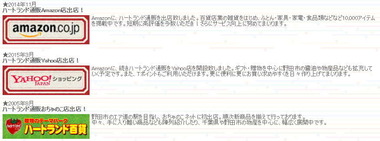 ★2014年11月
ハートランド通販Amazon店出店！
amazon.co.jp
Amazonに、ハートランド通販を出店致しました。百貨店業の雑貨をはじめ、ふとん・寝具・家電・食品類などなど10,000アイテム
を掲載中です。短期に高評価をうけいただき！さらにサービス向上に努めてまいります。
★2015年3月
ハートランド通販Yahoo店出店！
YAHOO!ショッピング
JAPAN
Amazonに、続きハートランド通販をYahoo店を開設致しました。ギフト・贈物を中心に野田市の醤油や物産品なども拡充して
いく予定です。また、Tポイントもご利用いただけます。更に便利に更にお買い求めやすく日々作り上げてまいります。
★2005年8月
ハートランド通販おちゃのこ店出店！
ハートランド百貨
野田市のエア濱の駅を目指し、おちゃのこネットに初出店。順次新商品を揃えて行っております。
中々、手に入り難い商品なども陳列紹介したり、千葉県や野田市の物産を中心に、幅広く展開中です。